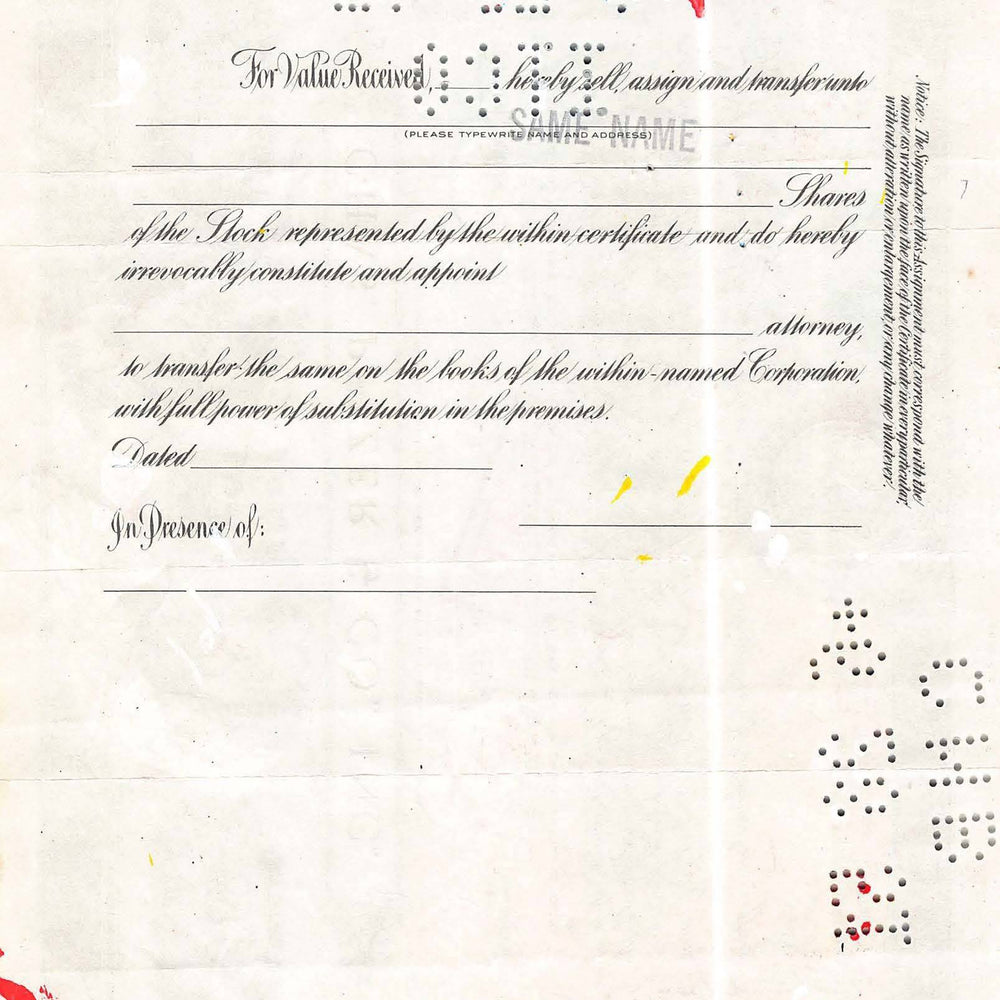 For Value Received, ____ hereby sell, assign and transfer unto
SAME NAME
(PLEASE TYPEWRITE NAME AND ADDRESS)
Shares
of the Stock represented by the within certificate and do hereby
irrevocably constitute and appoint
attorney,
to transfer the same on the books of the within-named Corporation,
with full power of substitution in the premises.
Dated
In Presence of:
Notice: The Signature to this Assignment must correspond with the
name as written upon the face of the Certificate in every particular,
without alteration or enlargement, or any change whatever.